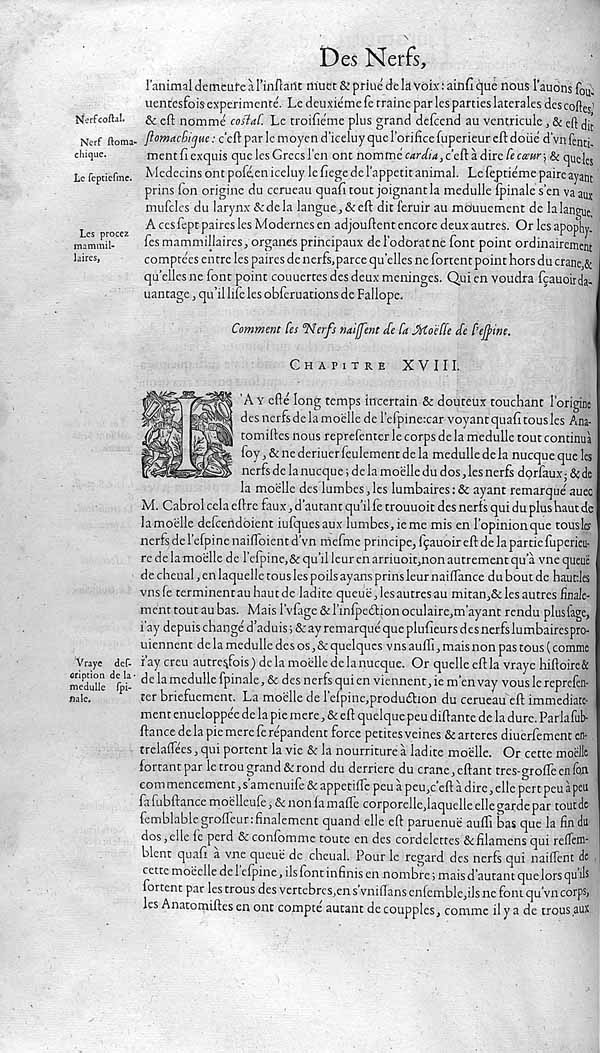 Des Nerfs,
l'animal demeure à l'inſtant muet & priué de la voix : ainſi que nous l'auons ſou-
uentesfois experimenté. Le deuxiéme ſe traine par les parties laterales des coſtes,
Nerf coſtal.
& eſt nommé coſtal. Le troiſiéme plus grand deſcend au ventricule, & eſt dit
Nerf ſtoma-
chique.
ſtomachique : c'eſt par le moyen d'iceluy que l'orifice ſuperieur eſt doüé d'vn ſenti-
ment ſi exquis que les Grecs l'en ont nommé cardia, c'eſt à dire le cœur ; & que les
Le ſeptieſme.
Medecins ont poſé, en iceluy le ſiege de l'appetit animal. Le ſeptiéme paire ayant
prins ſon origine du cerueau quaſi tout joignant la medulle ſpinale s'en va aux
muſcles du larynx & de la langue, & eſt dit ſeruir au mouuement de la langue.
Les procez
mammil-
laires,
A ces ſept paires les Modernes en adjouſtent encore deux autres. Or les apophy-
ſes mammillaires, organes principaux de l'odorat ne ſont point ordinairement
comptées entre les paires de nerfs, parce qu'elles ne ſortent point hors du crane, &
qu'elles ne ſont point couuertes des deux meninges. Qui en voudra ſçauoir da-
uantage, qu'il liſe les obſeruations de Fallope.
Comment les Nerfs naiſſent de la Moëlle de l'eſpine.
CHAPITRE XVIII.
I'AY eſté long temps incertain & douteux touchant l'origine
des nerfs de la moëlle de l'eſpine: car voyant quaſi tous les Ana-
tomiſtes nous repreſenter le corps de la medulle tout continu à
ſoy, & ne deriuer ſeulement de la medulle de la nucque que les
nerfs de la nucque ; de la moëlle du dos, les nerfs dorſaux ; & de
la moëlle des lumbes, les lumbaires : & ayant remarqué auec
M. Cabrol cela eſtre faux, d'autant qu'il ſe trouuoit des nerfs qui du plus haut de
la moëlle deſcendoient iuſques aux lumbes, ie me mis en l'opinion que tous les
nerfs de l'eſpine naiſſoient d'vn meſme principe, ſçauoir eſt de la partie ſuperieu-
re de la moëlle de l'eſpine, & qu'il leur en arriuoit, non autrement qu'à vne queuë
de cheual, en laquelle tous les poils ayans prins leur naiſſance du bout de haut: les
vns ſe terminent au haut de ladite queuë, les autres au mitan, & les autres finale-
ment tout au bas. Mais l'vſage & l'inſpection oculaire, m'ayant rendu plus ſage,
i'ay depuis changé d'aduis ; & ay remarqué que pluſieurs des nerfs lumbaires pro-
uiennent de la medulle des os, & quelques vns auſſi, mais non pas tous (comme
Vraye deſ-
cription de la
medulle ſpi-
nale.
i'ay creu autresfois) de la moëlle de la nucque. Or quelle eſt la vraye hiſtoire &
de la medulle ſpinale, & des nerfs qui en viennent, ie m'en vay vous le repreſen-
ter briefuement. La moëlle de l'eſpine, production du cerueau eſt immediate-
ment enueloppée de la pie mere, & eſt quelque peu diſtante de la dure. Par la ſub-
ſtance de la pie mere ſe répandent force petites veines & arteres diuerſement en-
trelaſſées, qui portent la vie & la nourriture à ladite moëlle. Or cette moëlle
ſortant par le trou grand & rond du derriere du crane, eſtant tres-groſſe en ſon
commencement, s'amenuiſe & appetiſſe peu à peu, c'eſt à dire, elle pert peu à peu
ſa ſubſtance moëlleuſe, & non ſa maſſe corporelle, laquelle elle garde par tout de
ſemblable groſſeur: finalement quand elle eſt paruenuë auſſi bas que la fin du
dos, elle ſe perd & conſomme toute en des cordelettes & filamens qui reſſem-
blent quaſi à vne queuë de cheual. Pour le regard des nerfs qui naiſſent de
cette moëelle de l'eſpine, ils ſont infinis en nombre ; mais d'autant que lors qu'ils
ſortent par les trous des vertebres, en s'vniſſans enſemble, ils ne font qu'vn corps,
les Anatomiſtes en ont compté autant de coupples, comme il y a de trous aux